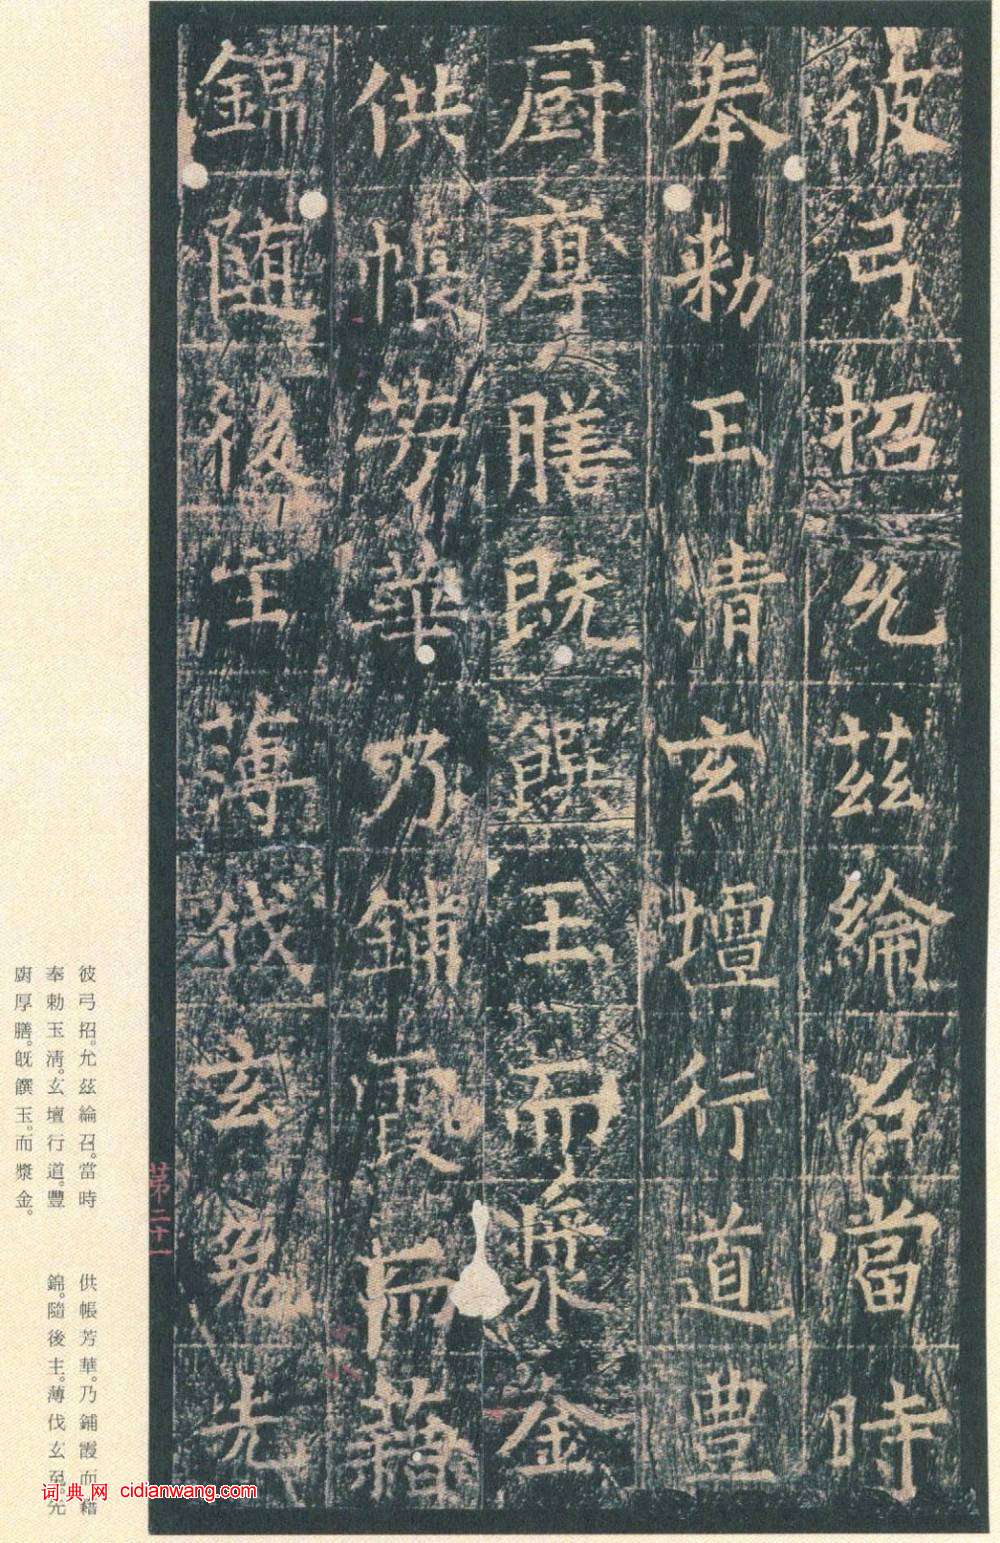 彼弓招允茲綸召當時
奉勅玉清玄壇行道豊
厨厚膳既饌玉而漿金
供帳芳華乃鋪霞而藉
錦随後主薄伐玄冕先
第二十一
彼弓招。允茲綸召。當時
奉勅玉清。玄壇行道。豐
廚厚膳。旣饌玉。而漿金。
供帳芳華。乃鋪霞而藉
錦。隨後主。薄伐玄 先
词典网 cidianwang.com